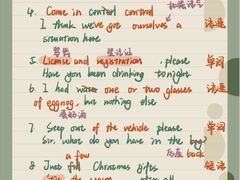 4. Come in control control
I think we've got ourselves a 语速
situation here
驾照 登记证
5. License and registration, please 单词
Have you been drinking tonight
6. I had one or two glasses 语速
of eggnog, but nothing else
蛋奶酒
7. Step out of the vehicle please 单词
Sir. what do you have in the bag?
a few back
8. Just full Christmas gifts 短语